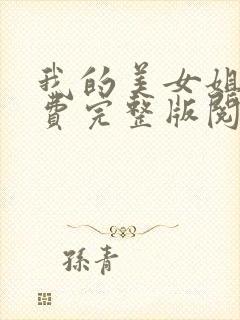 我的美女姐
费完整版阅
孫青